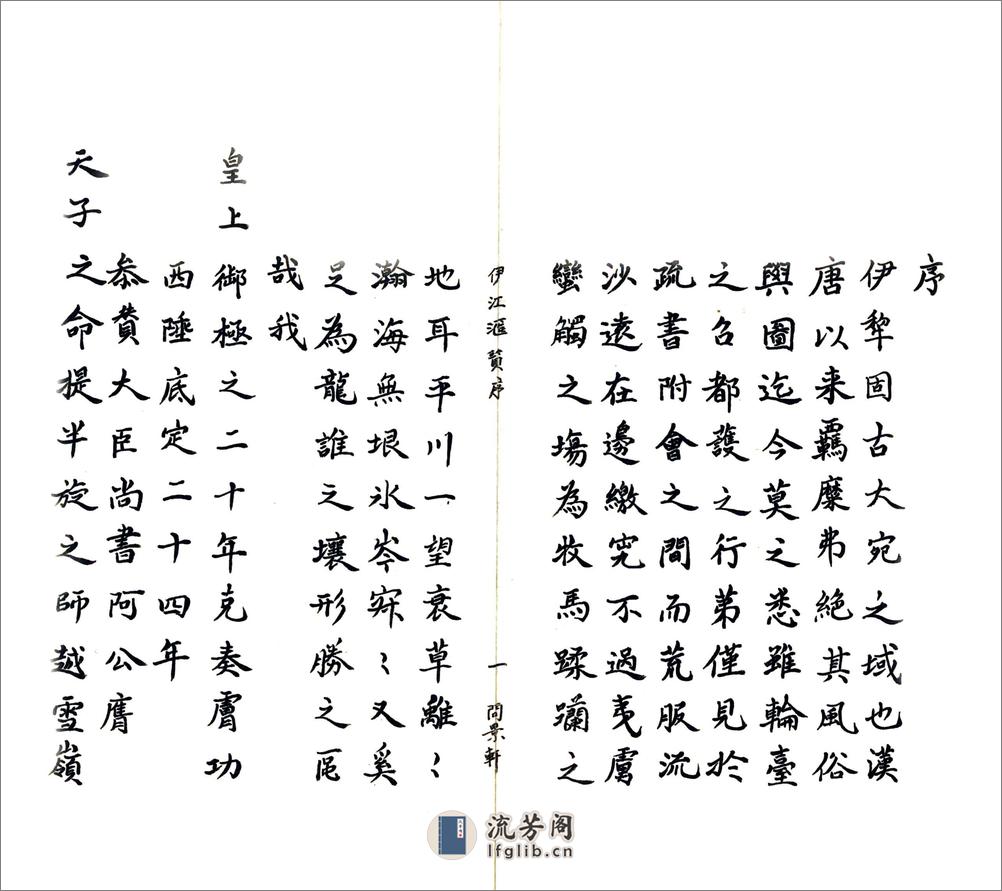 序
伊犂固古大宛之域也漢
唐以来覊縻弗絕其風俗
輿圖迄今莫之悉雖輪臺
之名都護之行第僅見於
疏書附會之間而荒服流
沙遠在邊繳究不過夷虜
蠻觸之塲為牧馬蹂躪之
伊江滙賛序
一
問景軒
地耳平川一望衰草離〻
瀚海無垠氷岑寂〻又奚
足為龍誰之壤形勝之區
哉我
皇上御極之二十年克奏膚功
西陲底定二十四年
叅賛大臣尚書阿公膺
天子之命提半旋之師越雪嶺
流芳阁
lfglib.cn